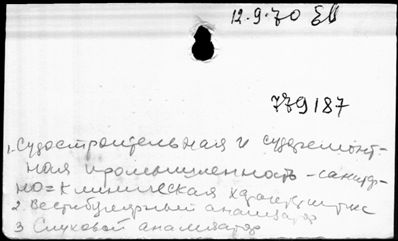 12.9.70 ЕВ
779187
1. Судостроительная и судоремонт-
ная промышленность - санитар-
но=клиническая характеристик
2. Вестибулярный анализатор
3 Слуховой анализатор